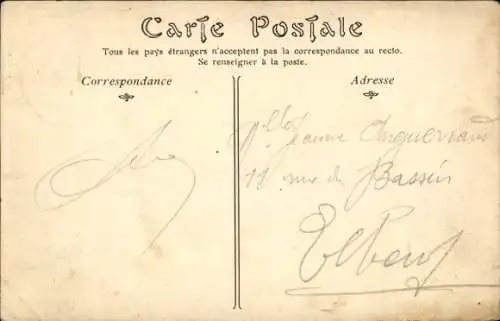 Carte Postale
Tous les pays étrangers n'acceptent pas la correspondance au recto.
Se renseigner à la poste.
Correspondance
Adresse
Mlle Jeanne
11 rue du Bassin
Elbeuf